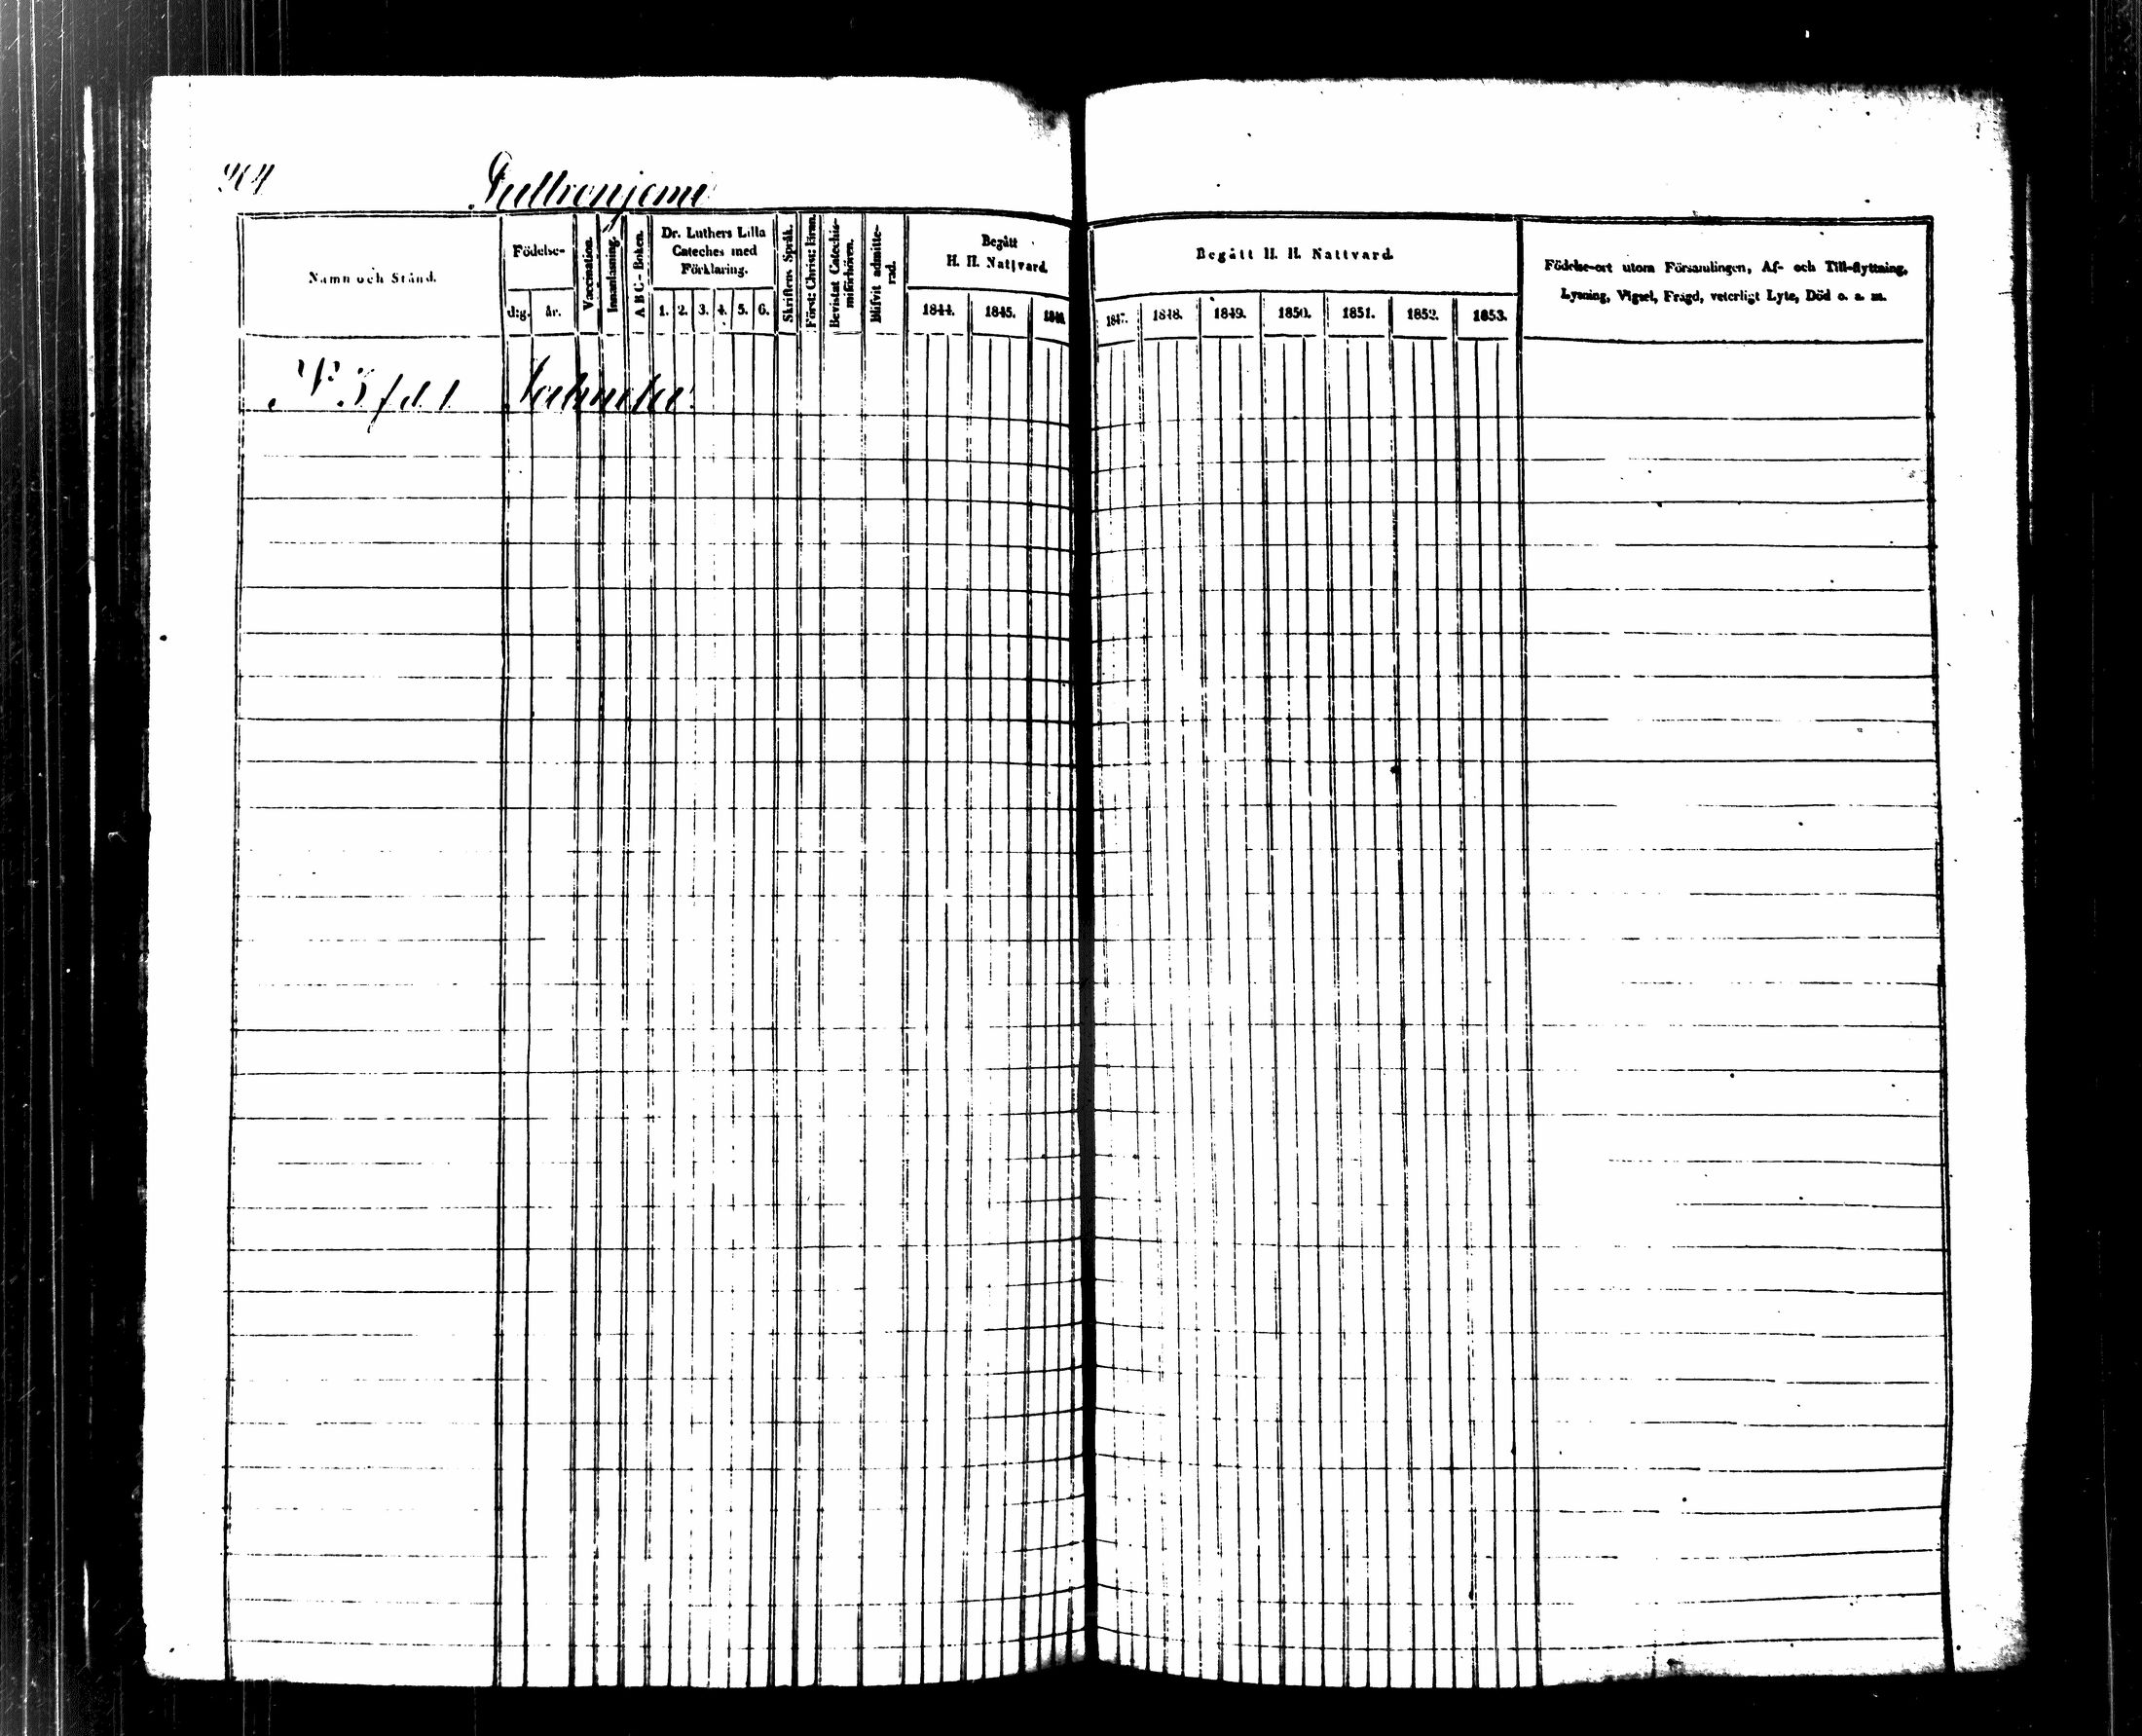 Namn och Stånd.
Födelse-
dag. år.
Vaccination.
Innanläsning.
A B C - Boken.
Dr. Luthers Lilla
Cateches med
Förklaring.
1. 2. 3. 4. 5. 6.
Skriftens Språk.
Först: Christ: läran.
Bevistat Catechis-
misförhören.
Blifvit admitte-
rad.
Begått
H. H. Nattvard.
1844. 1845. 1846.
Begått H. H. Nattvard.
1847. 1848. 1849. 1850. 1851. 1852. 1853.
Födelse-ort utom Församlingen, Af- och Till-flyttning,
Lysning, Vigsel, Frägd, veterligt Lyte, Död o. s. m.